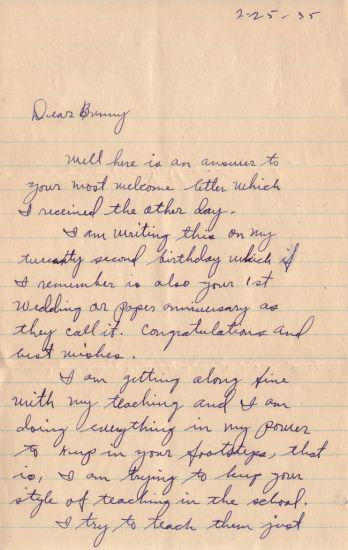 2-25-35
Dear Bunny
Well here is an answer to
your most welcome letter which
I received the other day.
I am writing this on my
twenty second birthday which if
I remember is also your 1st
Wedding or paper anniversary as
they call it. Congratulations and
best wishes.
I am getting along fine
with my teaching and I am
doing everything in my power
to keep in your footsteps, that
is, I am trying to keep your
style of teaching in the school.
I try to teach them just